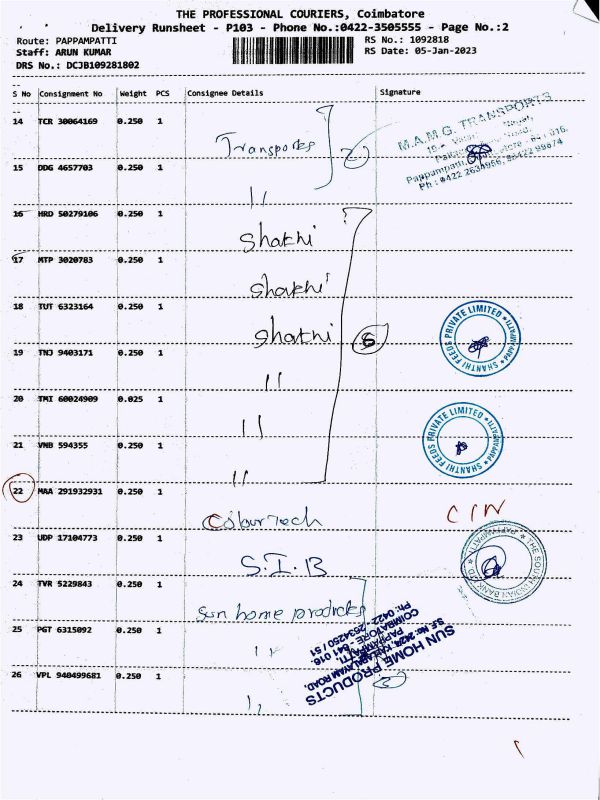 THE PROFESSIONAL COURIERS, Coimbatore
Delivery Runsheet - P103 - Phone No.:0422-3505555 - Page No.:2
Route: PAPPAMPATTI RS No.: 1092818
Staff: ARUN KUMAR RS Date: 05-Jan-2023
DRS No.: DCJB109281802
S No Consignment No Weight PCS Consignee Details Signature
14 TCR 30064169 0.250 1
Transportes 2
M.A.M.G. TRANSPORTS
Road,
Pappampatti, 641 016.
Ph : 0422 2634956, 98422 99874
15 DDG 4657703 0.250 1
11
16 HRD 50279106 0.250 1
Shakhi
17 MTP 3020783 0.250 1
Shakhi
18 TUT 6323164 0.250 1
Shakhi 6
SHANTHI FEEDS PRIVATE LIMITED * PAPPAMPATTI *
19 TNJ 9403171 0.250 1
11
20 TMI 60024909 0.025 1
11
SHANTHI FEEDS PRIVATE LIMITED * PAPPAMPATTI *
21 VNB 594355 0.250 1
11
22 MAA 291932931 0.250 1
Colourtech CIN
23 UDP 17104773 0.250 1
S.I.B
* THE SOUTH INDIAN BANK LTD. * PAPPAMPATTI
24 TVR 5229843 0.250 1
Sun home products
SUN HOME PRODUCTS
S.F. No: 242/4, KALAPALAYAM ROAD,
PAPPAMPATTI,
COIMBATORE - 641 016.
Ph: 0422 - 2634250 / 51
25 PGT 6315092 0.250 1
11
3
26 VPL 940499681 0.250 1
11